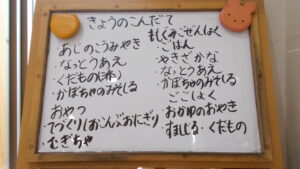 きょうのこんだて
・あじのこうみやき
・なっとうあえ
・くだもの
・かぼちゃのみそしる
おやつ
てづくり(おこんぶおにぎり
・むぎちゃ
・ごはん
・やきざかな
・なっとうあえ
・かぼちゃのみそしる
ごごしょく
・おかゆのおやき
・すましじる・くだもの